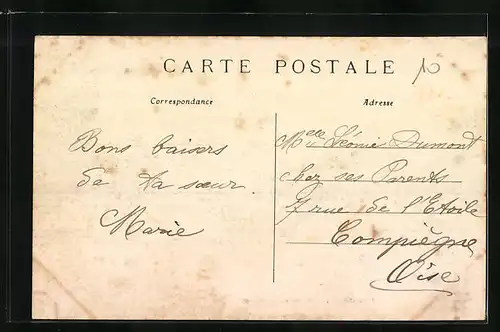 CARTE POSTALE
10
Correspondance
Adresse
Bons baisers
de ta sœur
Marie
Melle Léonie Dumont
chez ses Parents
7 rue de l'Etoile
Compiègne
Oise